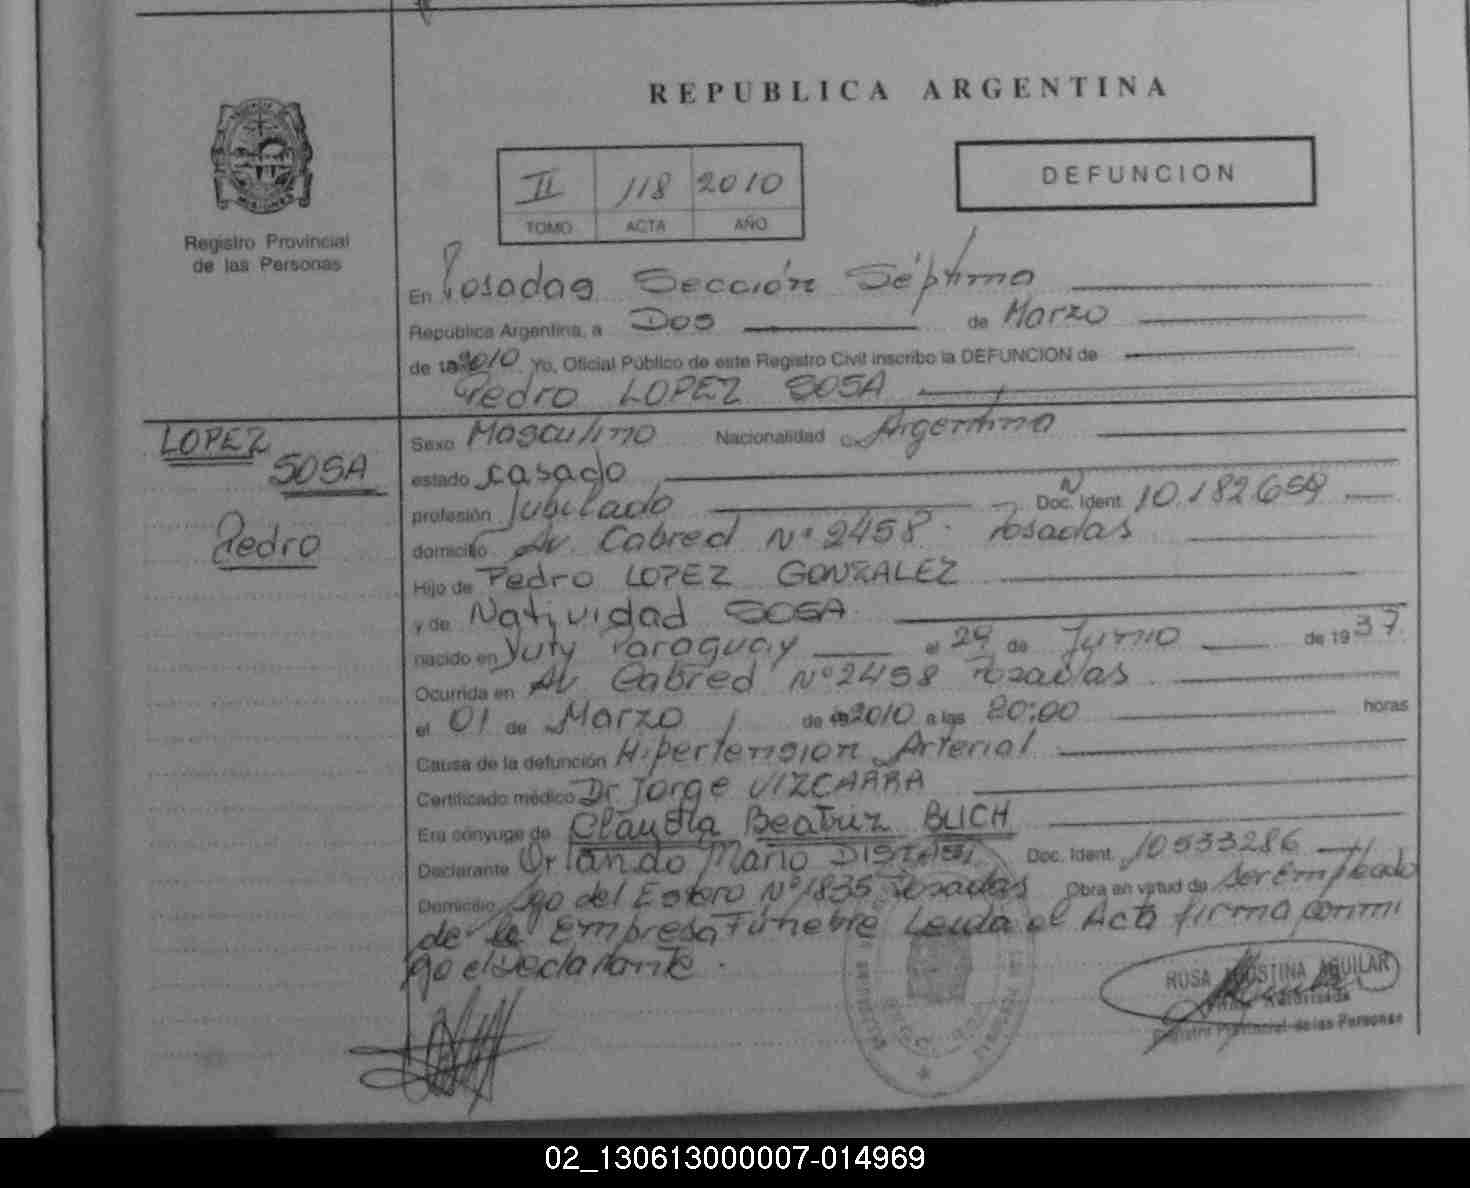 REPUBLICA ARGENTINA
II 118 2010
TOMO ACTA AÑO
DEFUNCION
Registro Provincial
de las Personas
En Posadas Sección Séptima
Republica Argentina, a Dos de Marzo
de 2010 Yo, Oficial Público de este Registro Civil inscribo la DEFUNCION de
Pedro LOPEZ SOSA
LOPEZ
SOSA
Pedro
Sexo Masculino Nacionalidad Argentina
estado casado
profesión Jubilado Doc. Ident. 10.182.659
domicilio Av. Cabred Nº 2458 Posadas
Hijo de Pedro LOPEZ GONZALEZ
y de Natividad SOSA
nacido en Yuty Paraguay el 29 de Junio de 1937
Ocurrida en Av. Cabred Nº 2458 Posadas
el 01 de Marzo de 2010 a las 20:00 horas
Causa de la defunción Hipertension Arterial
Certificado médico Dr Jorge VIZCARRA
Era cónyuge de Claudia Beatriz BLICH
Declarante Orlando Mario Doc. Ident. 10533286
Domicilio Sgo del Estero Nº 1835 Posadas Obra en virtud de ser Empleado
de la Empresa Fúnebre Leida el Acta firma conmi
go el declarante.
ROSA AGUSTINA AGUILAR
Registro Provincial de las Personas
02_130613000007-014969